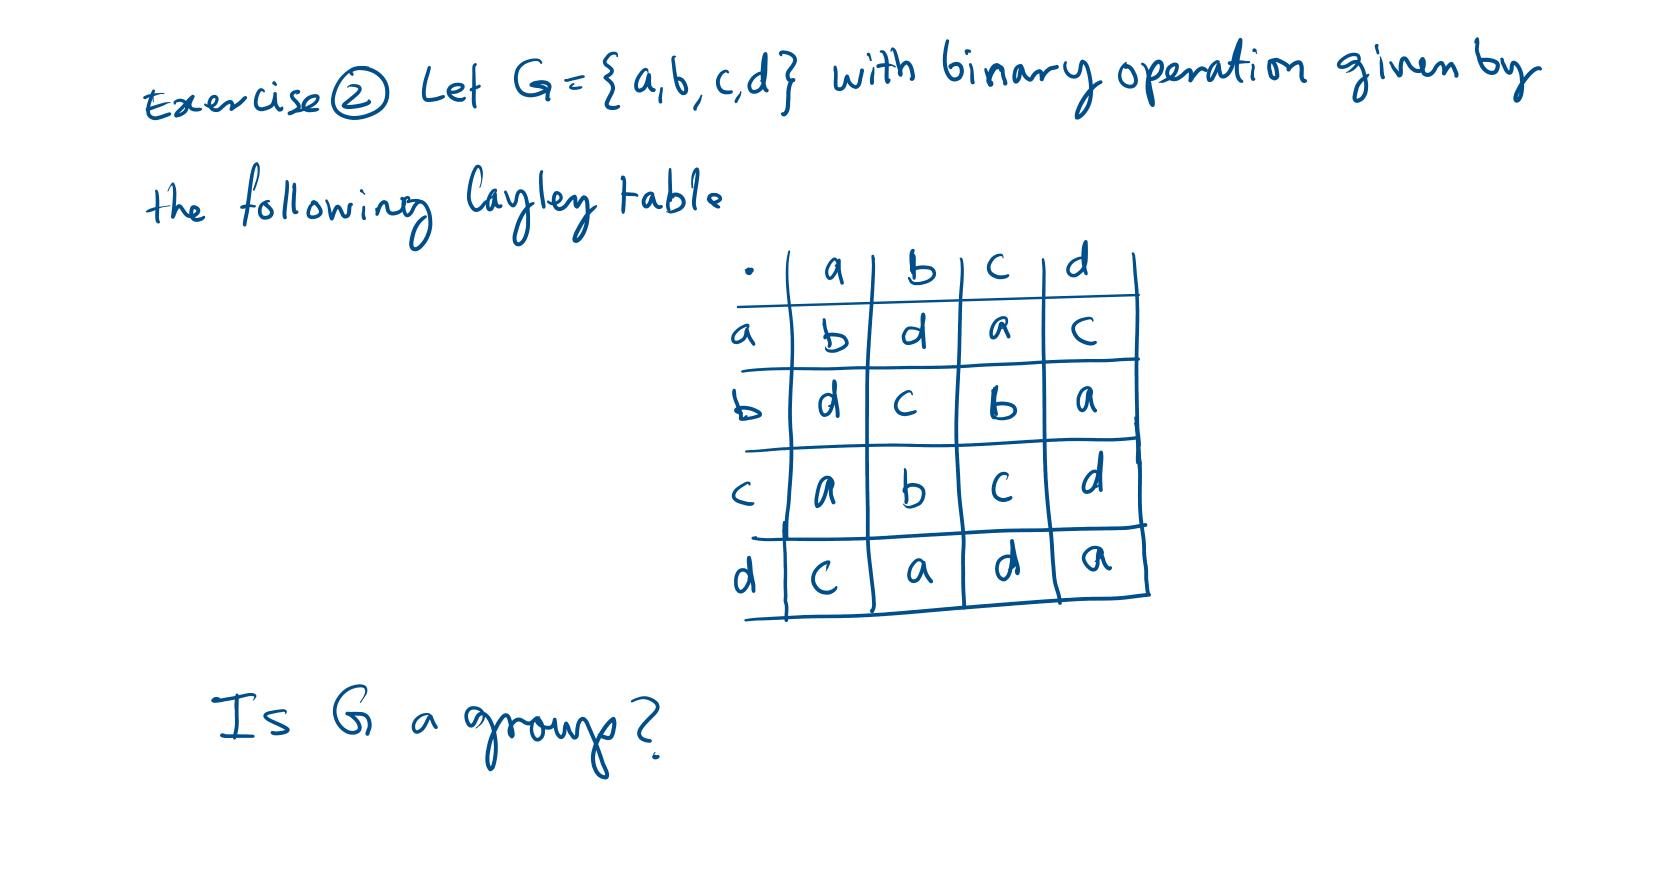 Exercise ② Let G = {a,b,c,d} with binary operation given by
the following Cayley table
· a b c d
a b d a c
b d c b a
c a b c d
d c a d a
Is G a group?